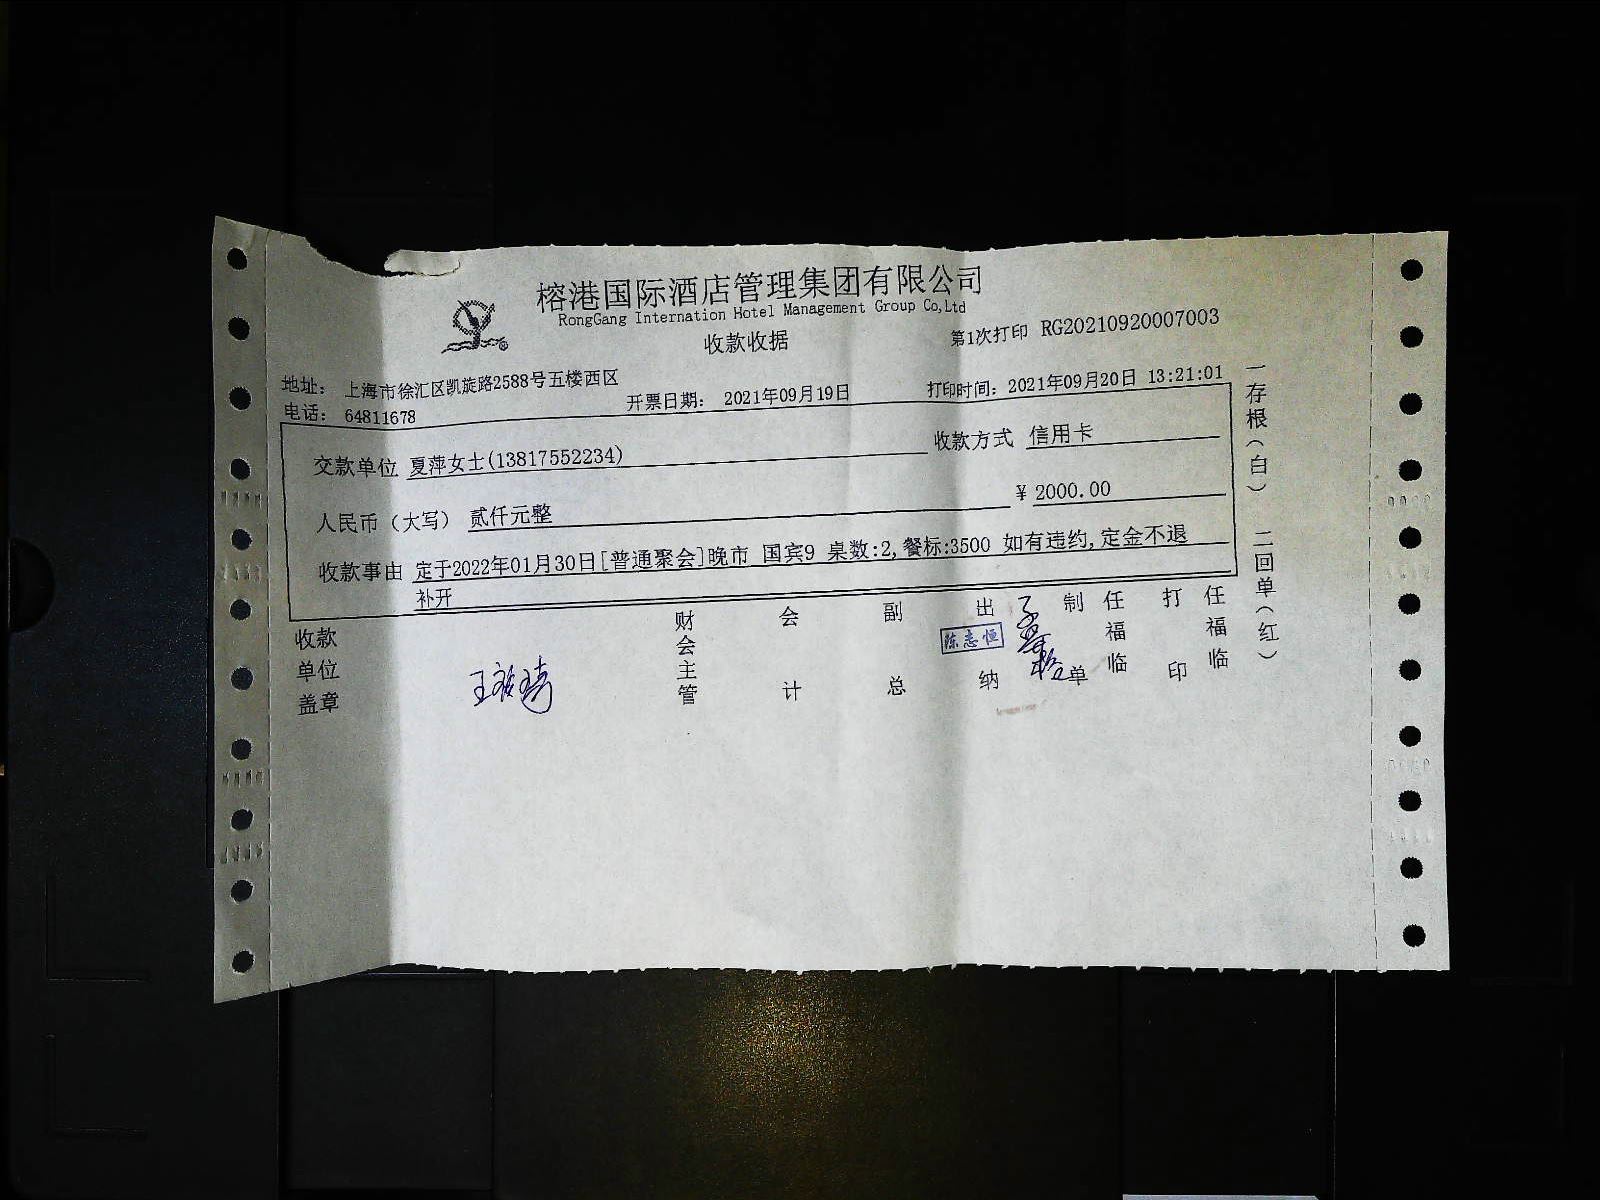 榕港国际酒店管理集团有限公司
RongGang Internation Hotel Management Group Co,Ltd
收款收据
第1次打印 RG20210920007003
地址： 上海市徐汇区凯旋路2588号五楼西区
电话： 64811678
开票日期： 2021年09月19日
打印时间： 2021年09月20日 13:21:01
交款单位 夏萍女士(13817552234)
收款方式 信用卡
人民币（大写） 贰仟元整
¥ 2000.00
收款事由 定于2022年01月30日[普通聚会]晚市 国宾9 桌数:2,餐标:3500 如有违约,定金不退
补开
收款单位盖章
财会主管
会计
副总
出纳
陈志恒
制单
任福临
打印
任福临
一存根（白） 二回单（红）